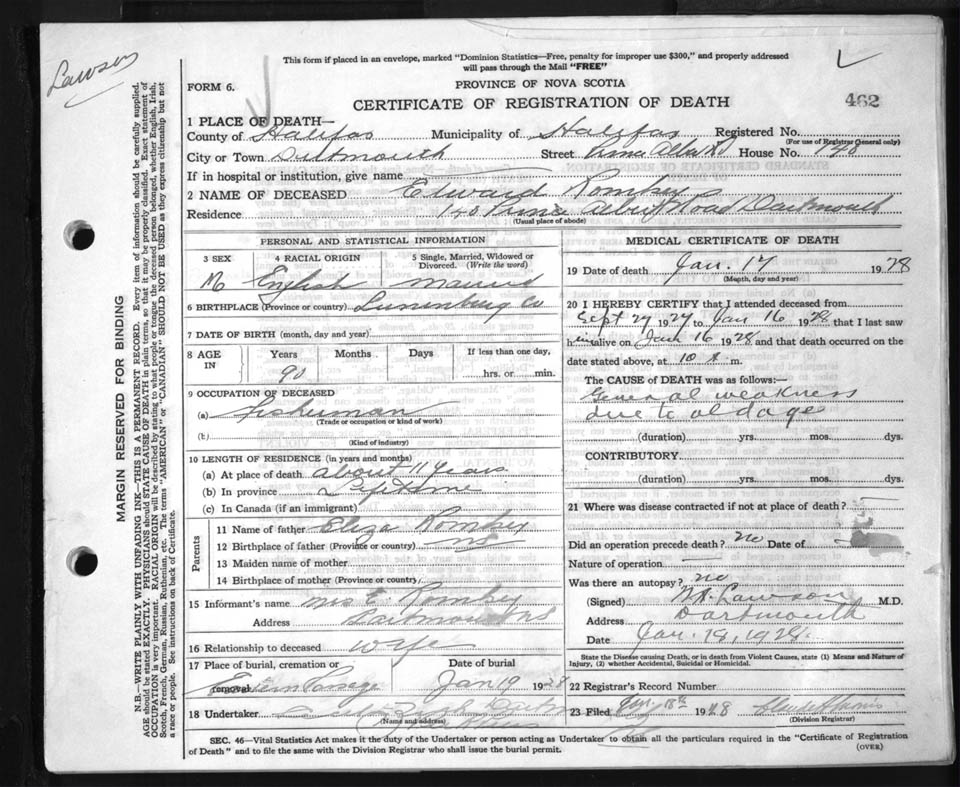 Lawson
This form if placed in an envelope, marked "Dominion Statistics—Free, penalty for improper use $300," and properly addressed
will pass through the Mail "FREE"
FORM 6.
PROVINCE OF NOVA SCOTIA
CERTIFICATE OF REGISTRATION OF DEATH
462
1 PLACE OF DEATH—
County of Halifax Municipality of Halifax Registered No.
(For use of Registrar General only)
City or Town Dartmouth Street Prince Albert Rd House No. 140
If in hospital or institution, give name
2 NAME OF DECEASED Edward Romkey
Residence 140 Prince Albert Road Dartmouth
(Usual place of abode)
PERSONAL AND STATISTICAL INFORMATION
3 SEX 4 RACIAL ORIGIN 5 Single, Married, Widowed or Divorced. (Write the word)
M English married
6 BIRTHPLACE (Province or country) Lunenburg Co
7 DATE OF BIRTH (month, day and year)
8 AGE IN Years Months Days If less than one day,
90 hrs. or min.
9 OCCUPATION OF DECEASED
(a) fisherman
(Trade or occupation or kind of work)
(b)
(Kind of industry)
10 LENGTH OF RESIDENCE (in years and months)
(a) At place of death about 11 years
(b) In province Lifetime
(c) In Canada (if an immigrant)
Parents
11 Name of father Romkey
12 Birthplace of father (Province or country) NS
13 Maiden name of mother
14 Birthplace of mother (Province or country)
15 Informant's name Mrs E. Romkey
Address Dartmouth NS
16 Relationship to deceased wife
17 Place of burial, cremation or removal Date of burial
Eastern Passage Jan 19 1928
18 Undertaker
(Name and address)
MEDICAL CERTIFICATE OF DEATH
19 Date of death Jan. 17 1928
(Month, day and year)
20 I HEREBY CERTIFY that I attended deceased from
Sept 29 1927 to Jan 16 1928 that I last saw
him alive on Jan 16 1928 and that death occurred on the
date stated above, at 10 m.
The CAUSE OF DEATH was as follows:—
General weakness
due to old age
(duration) yrs. mos. dys.
CONTRIBUTORY
(duration) yrs. mos. dys.
21 Where was disease contracted if not at place of death?
Did an operation precede death? no Date of
Nature of operation
Was there an autopsy? no
(Signed) Lawson M.D.
Address Dartmouth
Date Jan. 18, 1928
State the Disease causing Death, or in death from Violent Causes, state (1) Means and Nature of
Injury, (2) whether Accidental, Suicidal or Homicidal.
22 Registrar's Record Number
23 Filed Jany 18th 1928
(Division Registrar)
SEC. 46—Vital Statistics Act makes it the duty of the Undertaker or person acting as Undertaker to obtain all the particulars required in the "Certificate of Registration
of Death" and to file the same with the Division Registrar who shall issue the burial permit.
(OVER)
MARGIN RESERVED FOR BINDING
N.B.—WRITE PLAINLY WITH UNFADING INK—THIS IS A PERMANENT RECORD. Every item of information should be carefully supplied.
AGE should be stated EXACTLY. PHYSICIANS should STATE CAUSE OF DEATH in plain terms, so that it may be properly classified. Exact statement of
OCCUPATION is very important. RACIAL ORIGIN will be described by stating to what people or tongue the deceased person belonged, whether English, Irish,
Scotch, French, German, Russian, Ruthenian, etc. The terms "AMERICAN" or "CANADIAN" SHOULD NOT BE USED as they express citizenship but not
a race or people. See instructions on back of Certificate.